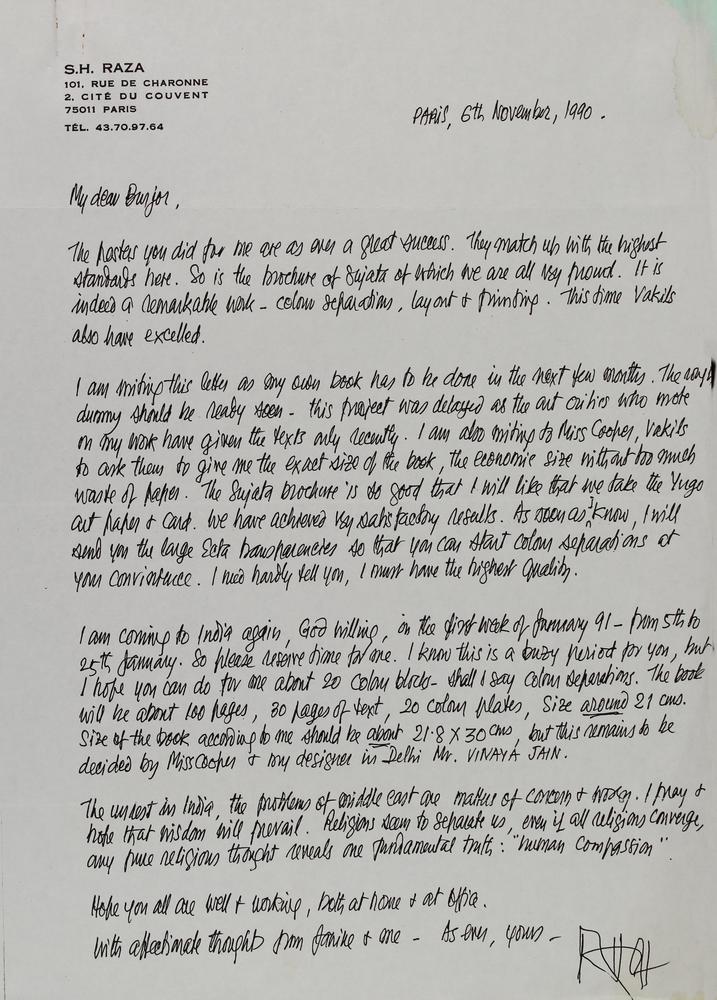 S.H. RAZA
101, RUE DE CHARONNE
2, CITÉ DU COUVENT
75011 PARIS
TÉL. 43.70.97.64
PARIS, 6th November, 1990.
My dear Burjor,
The posters you did for me are as ever a great success. They match up with the highest
standards here. So is the brochure of Sujata of which we are all very proud. It is
indeed a remarkable work - colour separations, layout & printing. This time Vakils
also have excelled.
I am writing this letter as my own book has to be done in the next few months. The
dummy should be ready soon - this project was delayed as the art critics who wrote
on my work have given the texts only recently. I am also writing to Miss Cooper, Vakils
to ask them to give me the exact size of the book, the economic size without too much
waste of paper. The Sujata brochure is so good that I will like that we take the Yugo
art paper & card. We have achieved very satisfactory results. As soon as I know, I will
send you the large Ecta transparencies so that you can start colour separations at
your convinience. I need hardly tell you, I must have the highest quality.
I am coming to India again, God willing, in the first week of January 91 - from 5th to
25th January. So please reserve time for me. I know this is a buzy period for you, but
I hope you can do for me about 20 colour blocks - shall I say colour separations. The book
will be about 100 pages, 30 pages of text, 20 colour plates, size around 21 cms.
Size of the book according to me should be about 21.8 X 30 cms, but this remains to be
decided by Miss Cooper & my designer in Delhi Mr. VINAYA JAIN.
The unrest in India, the problems of middle east are matters of concern & worry. I pray &
hope that wisdom will prevail. Religions seem to separate us, even if all religions converge,
any pure religious thought reveals one fundamental truth: "human compassion".
Hope you all are well & working, both at home & at office.
With affectionate thoughts from Janine & me - As ever, yours -
RAZA